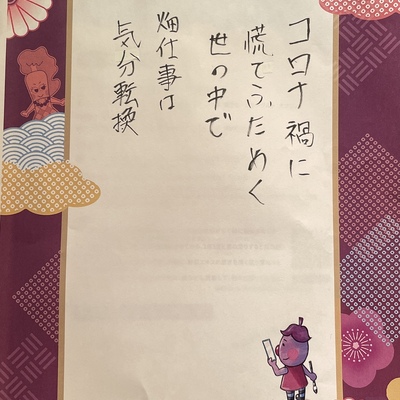 コロナ禍に
慌てふためく
世の中で
畑仕事は
気分転換